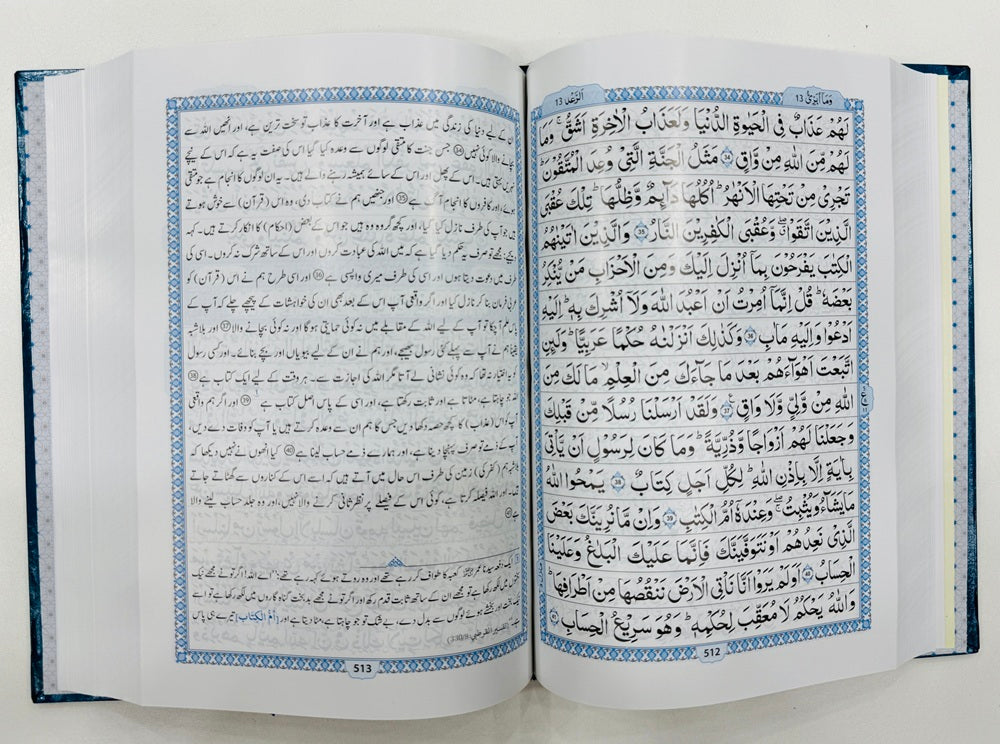 وَمَآ اُبَرِّئُ 13
اَلرَّعْد 13
لَهُمْ عَذَابٌ فِى الْحَيٰوةِ الدُّنْيَا وَلَعَذَابُ الْاٰخِرَةِ اَشَقُّ ۚ وَمَا
لَهُمْ مِّنَ اللّٰهِ مِنْ وَّاقٍ ﴿34﴾ مَثَلُ الْجَنَّةِ الَّتِىْ وُعِدَ الْمُتَّقُوْنَ ؕ
تَجْرِىْ مِنْ تَحْتِهَا الْاَنْهٰرُ ؕ اُكُلُهَا دَآئِمٌ وَّظِلُّهَا ؕ تِلْكَ عُقْبَى
الَّذِيْنَ اتَّقَوْا ۖ وَّعُقْبَى الْكٰفِرِيْنَ النَّارُ ﴿35﴾ وَالَّذِيْنَ اٰتَيْنٰهُمُ
الْكِتٰبَ يَفْرَحُوْنَ بِمَآ اُنْزِلَ اِلَيْكَ وَمِنَ الْاَحْزَابِ مَنْ يُّنْكِرُ
بَعْضَهٗ ؕ قُلْ اِنَّمَآ اُمِرْتُ اَنْ اَعْبُدَ اللّٰهَ وَلَآ اُشْرِكَ بِهٖ ؕ اِلَيْهِ
اَدْعُوْا وَاِلَيْهِ مَاٰبِ ﴿36﴾ وَكَذٰلِكَ اَنْزَلْنٰهُ حُكْمًا عَرَبِيًّا ؕ وَلَئِنِ
اتَّبَعْتَ اَهْوَآءَهُمْ بَعْدَ مَا جَآءَكَ مِنَ الْعِلْمِ ۙ مَا لَكَ مِنَ
اللّٰهِ مِنْ وَّلِىٍّ وَّلَا وَاقٍ ﴿37﴾ وَلَقَدْ اَرْسَلْنَا رُسُلًا مِّنْ قَبْلِكَ
وَجَعَلْنَا لَهُمْ اَزْوَاجًا وَّذُرِّيَّةً ؕ وَمَا كَانَ لِرَسُوْلٍ اَنْ يَّاْتِىَ
بِاٰيَةٍ اِلَّا بِاِذْنِ اللّٰهِ ؕ لِكُلِّ اَجَلٍ كِتَابٌ ﴿38﴾ يَمْحُوا اللّٰهُ
مَا يَشَآءُ وَيُثْبِتُ ۖ وَعِنْدَهٗٓ اُمُّ الْكِتٰبِ ﴿39﴾ وَاِنْ مَّا نُرِيَنَّكَ بَعْضَ
الَّذِىْ نَعِدُهُمْ اَوْ نَتَوَفَّيَنَّكَ فَاِنَّمَا عَلَيْكَ الْبَلٰغُ وَعَلَيْنَا
الْحِسَابُ ﴿40﴾ اَوَلَمْ يَرَوْا اَنَّا نَاْتِى الْاَرْضَ نَنْقُصُهَا مِنْ اَطْرَافِهَا ؕ
وَاللّٰهُ يَحْكُمُ لَا مُعَقِّبَ لِحُكْمِهٖ ؕ وَهُوَ سَرِيْعُ الْحِسَابِ ﴿41﴾
512
ان کے لیے دنیا کی زندگی میں عذاب ہے اور آخرت کا عذاب تو سخت ترین ہے، اور انھیں اللہ سے
بچانے والا کوئی نہیں ﴿34﴾ جس جنت کا متقی لوگوں سے وعدہ کیا گیا اس کی صفت یہ ہے کہ اس کے نیچے
نہریں بہتی ہیں۔ اس کے پھل اور اس کے سائے ہمیشہ رہنے والے ہیں۔ یہ ان لوگوں کا انجام ہے جو متقی
ہوئے، اور کافروں کا انجام آگ ہے ﴿35﴾ اور جنھیں ہم نے کتاب دی، وہ اس (قرآن) سے خوش ہوتے
ہیں جو آپ کی طرف نازل کیا گیا، اور کچھ گروہ وہ ہیں جو اس کے بعض (احکام) کا انکار کرتے ہیں۔ کہہ
دیجیے: مجھے تو صرف یہ حکم دیا گیا ہے کہ میں اللہ کی عبادت کروں اور اس کے ساتھ شرک نہ کروں۔ اسی کی
طرف میں دعوت دیتا ہوں اور اسی کی طرف میری واپسی ہے ﴿36﴾ اور اسی طرح ہم نے اس (قرآن) کو
عربی فرمان بنا کر نازل کیا اور اگر واقعی آپ اس کے بعد بھی ان کی خواہشات کے پیچھے چلے کہ آپ کے
پاس علم آچکا تو آپ کے لیے اللہ کے مقابلے میں نہ کوئی حمایتی ہوگا اور نہ کوئی بچانے والا ﴿37﴾ اور بلاشبہ
یقیناً ہم نے آپ سے پہلے کئی رسول بھیجے، اور ہم نے ان کے لیے بیویاں اور بچے بنائے۔ اور کسی رسول
کو یہ اختیار نہ تھا کہ وہ کوئی نشانی لے آتا مگر اللہ کی اجازت سے۔ ہر وقت کے لیے ایک کتاب ہے ﴿38﴾
اللہ جو چاہتا ہے، مٹاتا ہے اور ثابت رکھتا ہے، اور اسی کے پاس اصل کتاب ہے ﴿39﴾ اور اگر ہم واقعی
آپ کو اس (عذاب) کا کچھ حصہ دکھا دیں جس کا ہم ان سے وعدہ کرتے ہیں یا آپ کو وفات دے دیں،
آپ کے ذمے تو صرف پہنچا دینا ہے، اور ہمارے ذمے حساب لینا ہے ﴿40﴾ کیا انھوں نے نہیں دیکھا کہ
ہم (کفر کی) زمین کی طرف اس حال میں آتے ہیں کہ اسے اس کے کناروں سے گھٹاتے جاتے
ہیں۔ اور اللہ فیصلہ کرتا ہے، کوئی اس کے فیصلے پر نظر ثانی کرنے والا نہیں، اور وہ جلد حساب لینے والا
ہے ﴿41﴾
ایک دفعہ سیدنا عمر کعبہ کا طواف کر رہے تھے اور وہ روتے ہوئے کہہ رہے تھے: "اے اللہ! اگر تو نے مجھے نیک
لکھا ہوا رکھا ہے تو مجھے ان کے ساتھ ثابت قدم رکھ اور اگر تو نے مجھے بد بخت گناہ گاروں میں لکھا رکھا ہے تو اسے
اور بخشے ہوئے لوگوں سے بدل دے، بے شک تو جو چاہتا ہے، مٹا دیتا ہے اور ﴿اُمُّ الْكِتَاب﴾ تیرے ہی پاس
(تفسیر القرطبی: 330/9)
513